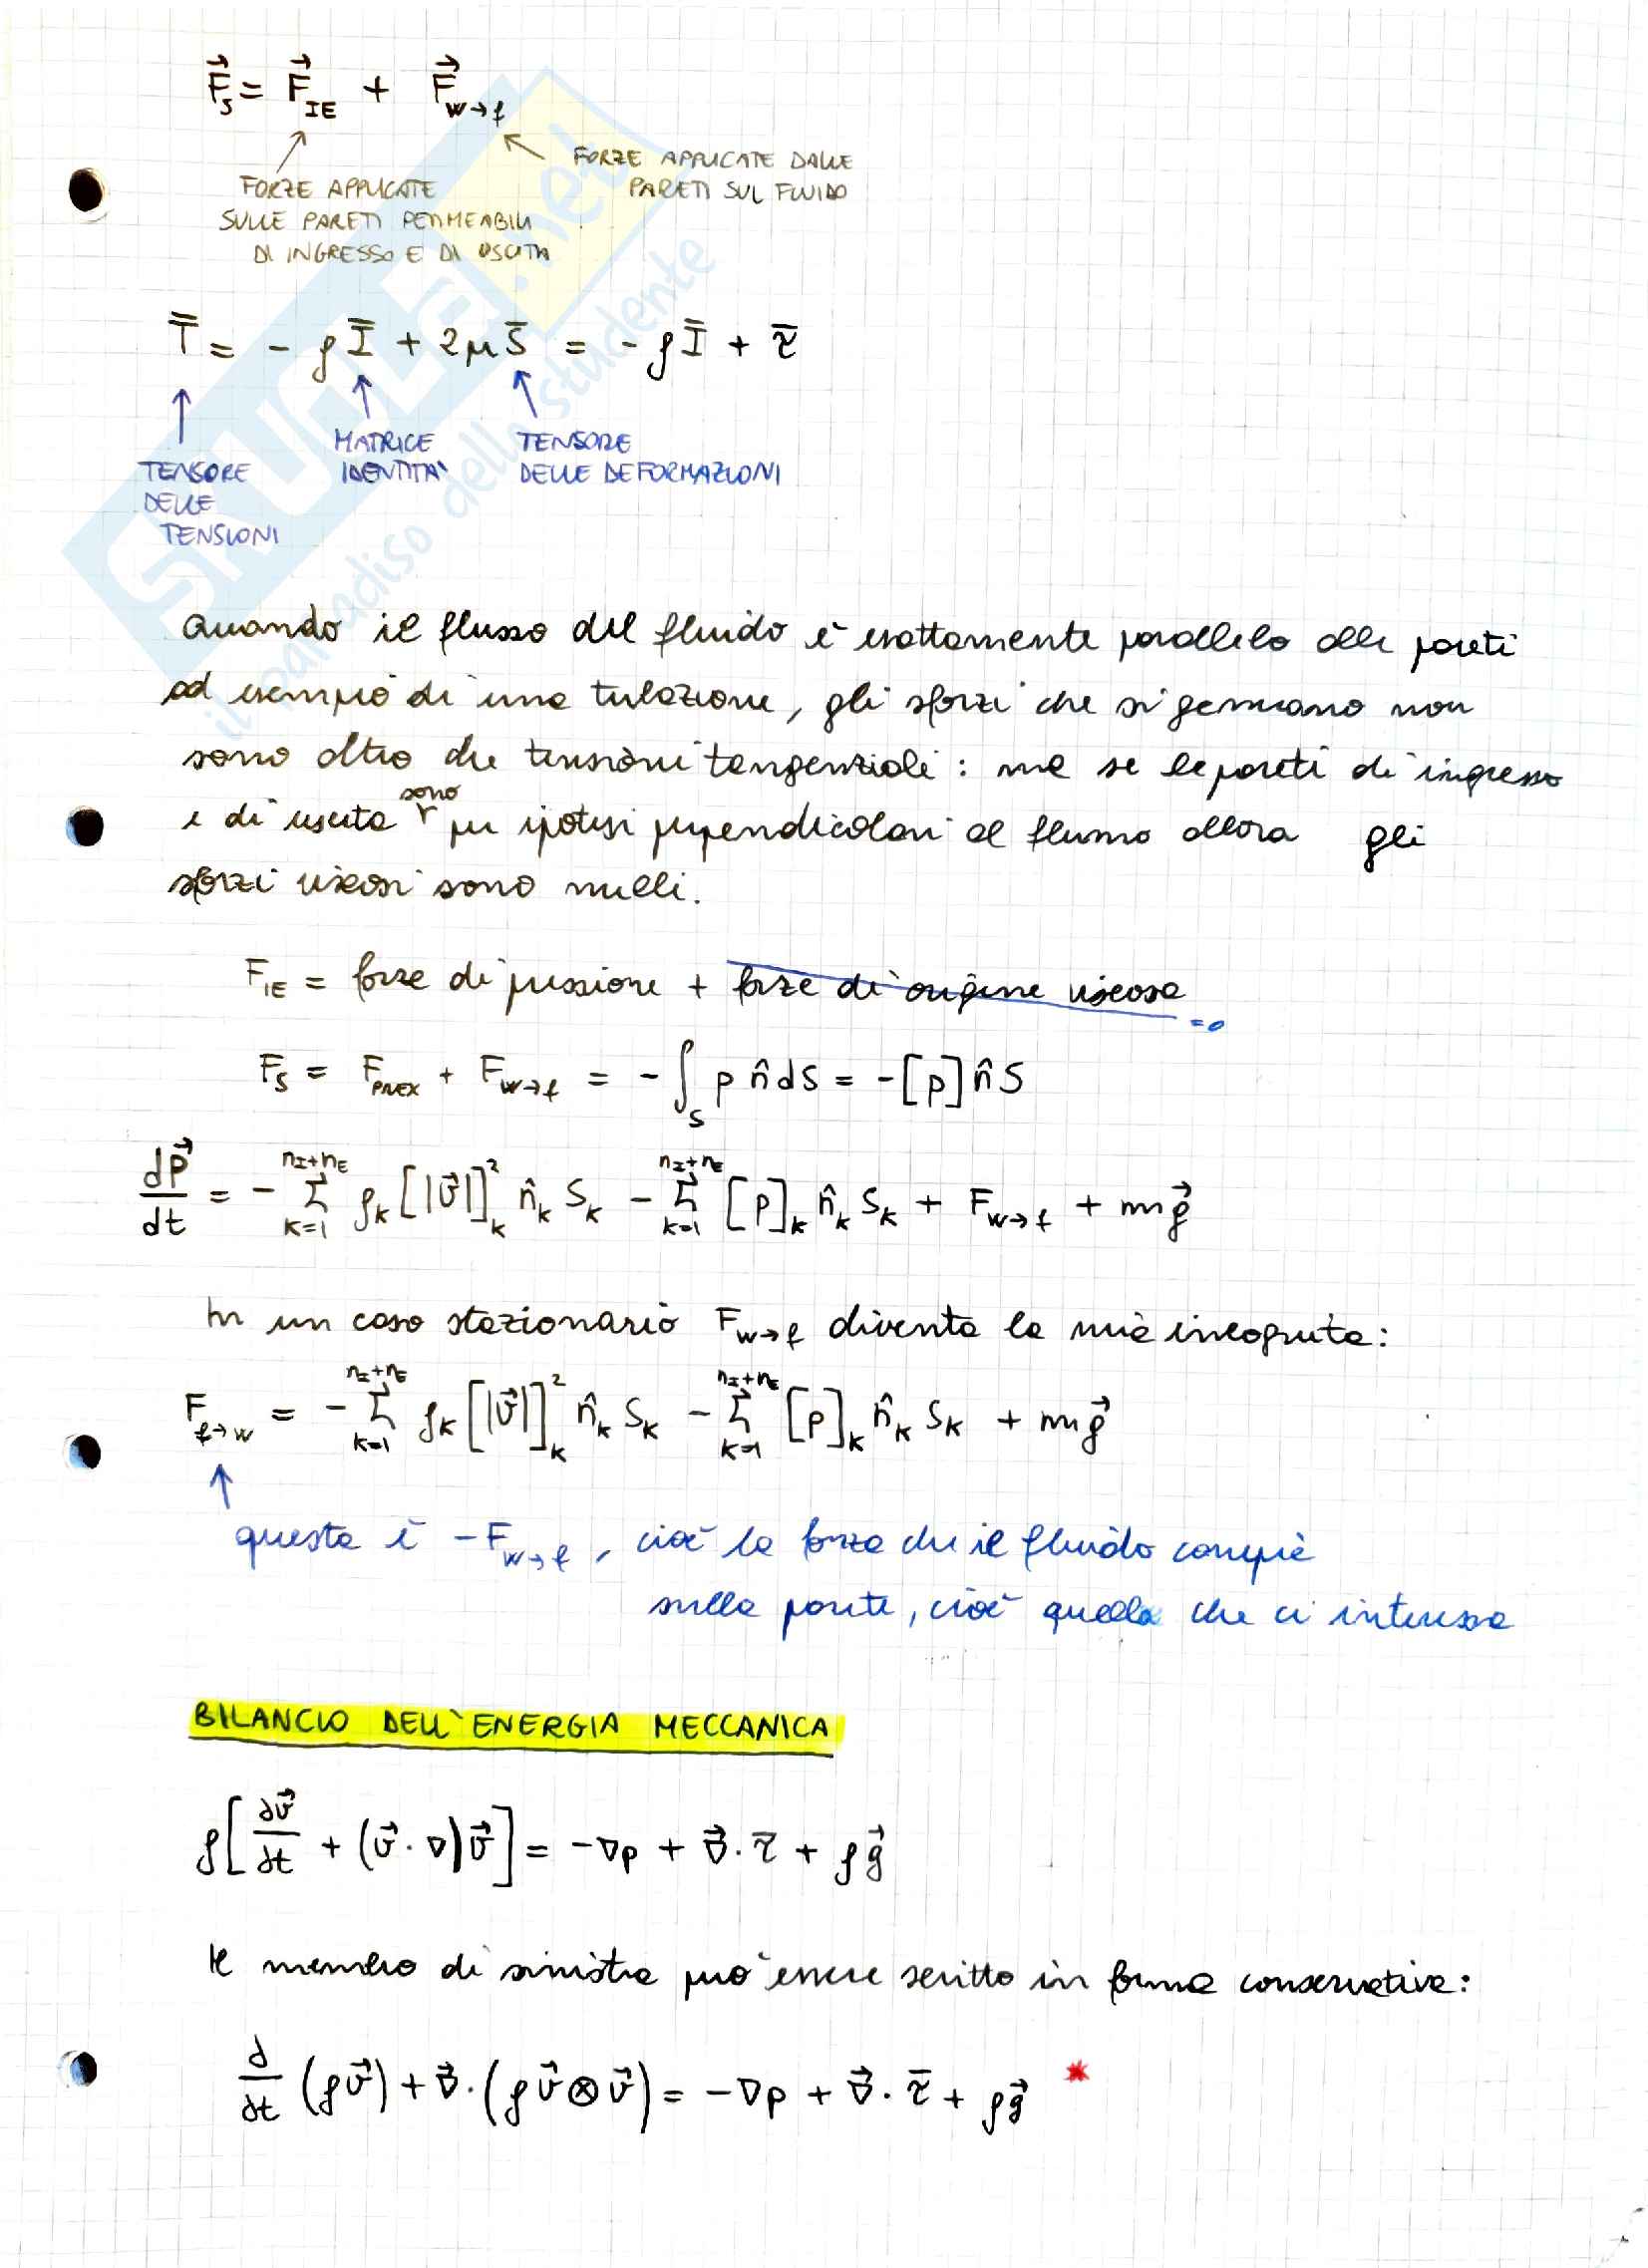 F⃗_S = F⃗_IE + F⃗_w→f
FORZE APPLICATE DALLE
PARETI SUL FLUIDO
FORZE APPLICATE
SULLE PARETI PERMEABILI
DI INGRESSO E DI USCITA
T̿ = - ρ I̿ + 2μ S̄ = - ρ I̿ + τ̄
TENSORE
DELLE
TENSIONI
MATRICE
IDENTITA'
TENSORE
DELLE DEFORMAZIONI
Quando il flusso del fluido è esattamente parallelo alle pareti
ad esempio di una tubazione, gli sforzi che si generano non
sono altro che tensioni tangenziali : ma se le pareti di ingresso
e di uscita sono per ipotesi perpendicolari al flusso allora gli
sforzi viscosi sono nulli.
F_IE = forze di pressione + forze di origine viscosa =0
F_S = F_PREX + F_w→f = - ∫_S p n̂ dS = - [p] n̂ S
dP⃗/dt = - Σ_{k=1}^{n_I+n_E} ρ_k [|v⃗|]_k^2 n̂_k S_k - Σ_{k=1}^{n_I+n_E} [p]_k n̂_k S_k + F_w→f + m g⃗
In un caso stazionario F_w→f diventa la mia incognita:
F_f→w = - Σ_{k=1}^{n_I+n_E} ρ_k [|v⃗|]_k^2 n̂_k S_k - Σ_{k=1}^{n_I+n_E} [p]_k n̂_k S_k + m g⃗
questa è -F_w→f, cioè la forza che il fluido compie
sulla parete, cioè quella che ci interessa
BILANCIO DELL'ENERGIA MECCANICA
ρ[∂v⃗/∂t + (v⃗·∇)v⃗] = -∇p + ∇⃗·τ̄ + ρg⃗
Il membro di sinistra può essere scritto in forma conservativa:
∂/∂t (ρv⃗) + ∇⃗·(ρv⃗⊗v⃗) = -∇p + ∇⃗·τ̄ + ρg⃗ *
SKUOLA.net
il paradiso dello studente